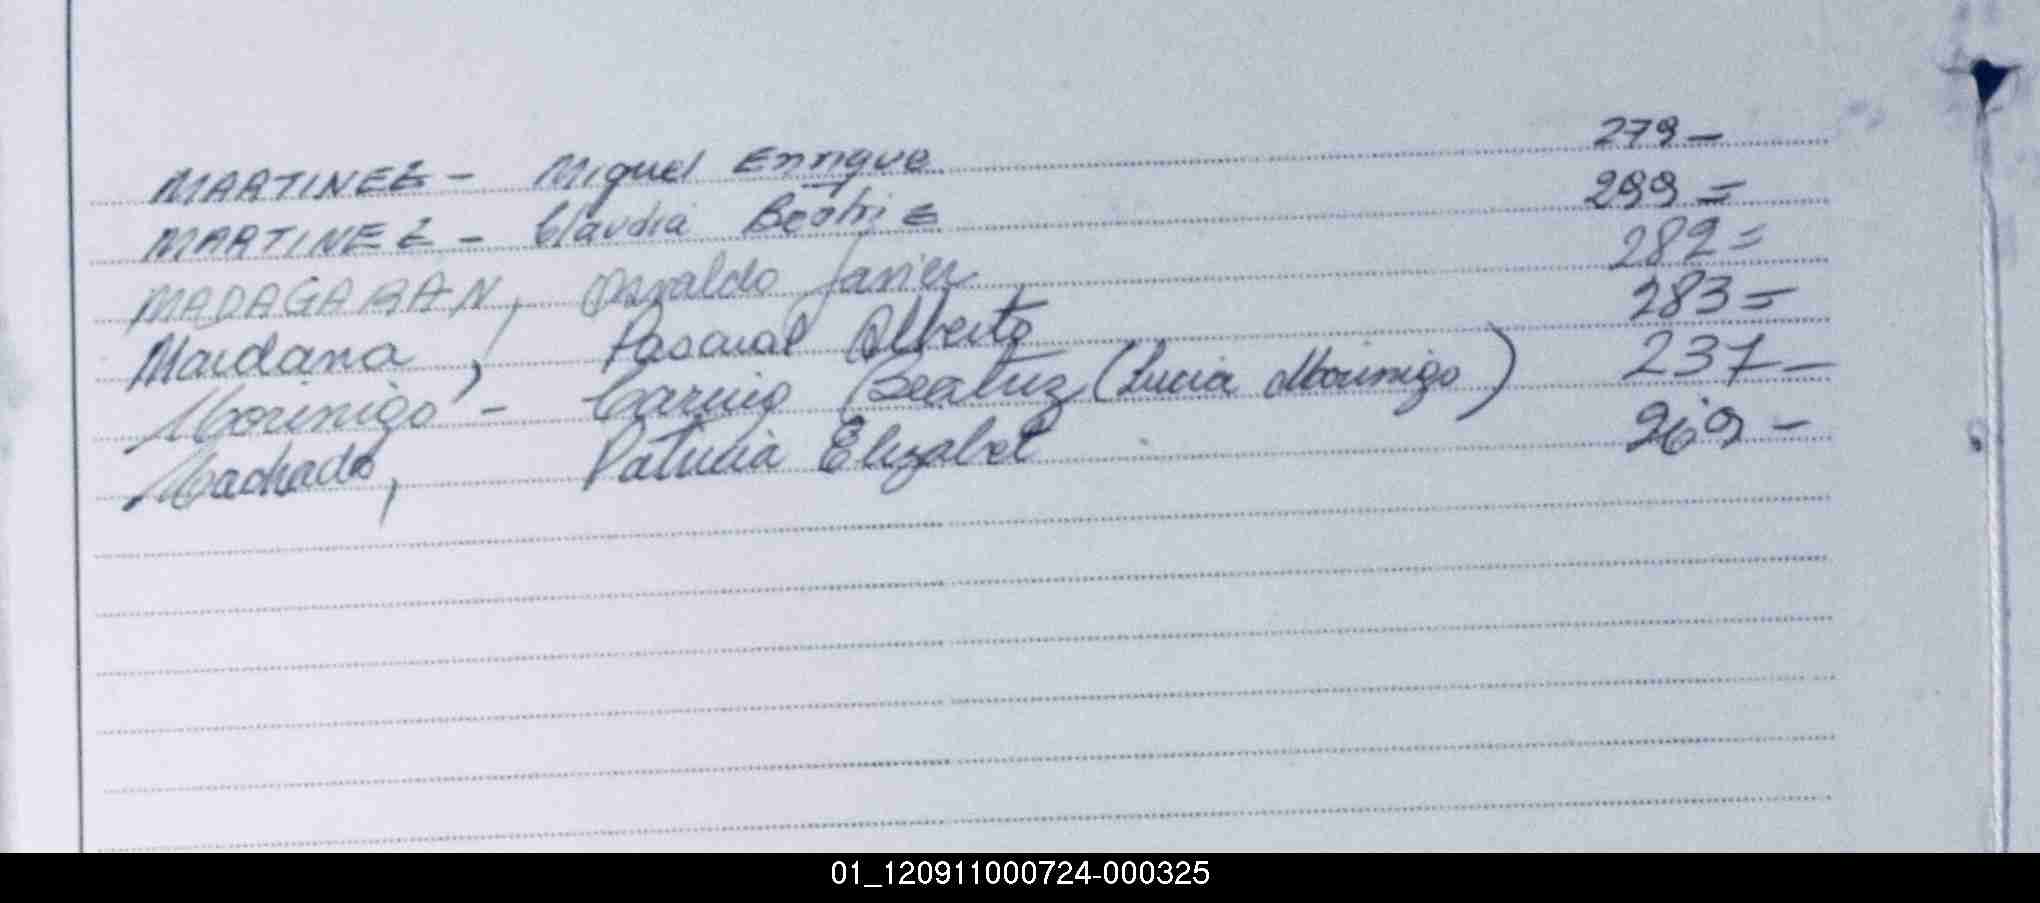 MARTINEZ - Miguel Enrique 279 -
MARTINEZ - Claudia Beatriz 299 =
MADAGARAN, Osvaldo Javier 282 =
Maidana, Pascual Alberto 283 =
Morinigo - Carino Beatriz (Lucia Morinigo) 237 -
Machado, Patricia Elizabet 269 -
01_120911000724-000325